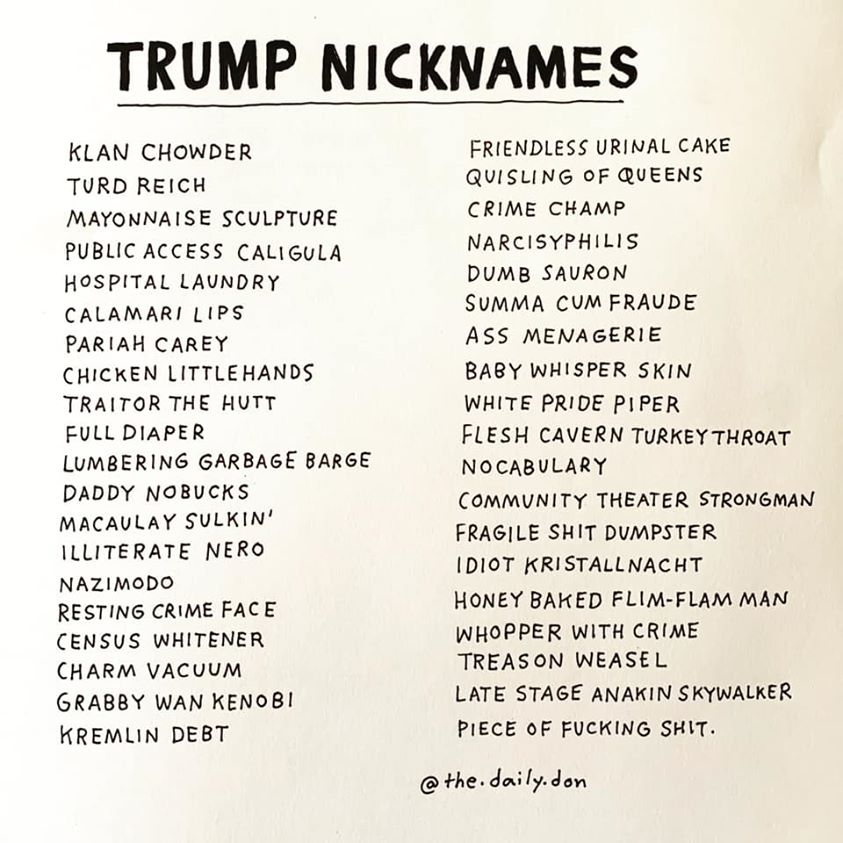 TRUMP NICKNAMES
KLAN CHOWDER
TURD REICH
MAYONNAISE SCULPTURE
PUBLIC ACCESS CALIGULA
HOSPITAL LAUNDRY
CALAMARI LIPS
PARIAH CAREY
CHICKEN LITTLEHANDS
TRAITOR THE HUTT
FULL DIAPER
LUMBERING GARBAGE BARGE
DADDY NOBUCKS
MACAULAY SULKIN'
ILLITERATE NERO
NAZIMODO
RESTING CRIME FACE
CENSUS WHITENER
CHARM VACUUM
GRABBY WAN KENOBI
KREMLIN DEBT
FRIENDLESS URINAL CAKE
QUISLING OF QUEENS
CRIME CHAMP
NARCISYPHILIS
DUMB SAURON
SUMMA CUM FRAUDE
ASS MENAGERIE
BABY WHISPER SKIN
WHITE PRIDE PIPER
FLESH CAVERN TURKEYTHROAT
NOCABULARY
COMMUNITY THEATER STRONGMAN
FRAGILE SHIT DUMPSTER
IDIOT KRISTALLNACHT
HONEY BAKED FLIM-FLAM MAN
WHOPPER WITH CRIME
TREASON WEASEL
LATE STAGE ANAKIN SKYWALKER
PIECE OF FUCKING SHIT.
@the.daily.don